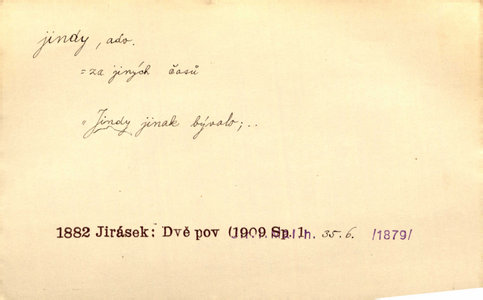 jindy, adv.
= za jiných časů
„Jindy jinak bývalo;..
1882 Jirásek: Dvě pov (1909 Sp. 1 h. 35.6. /1879/